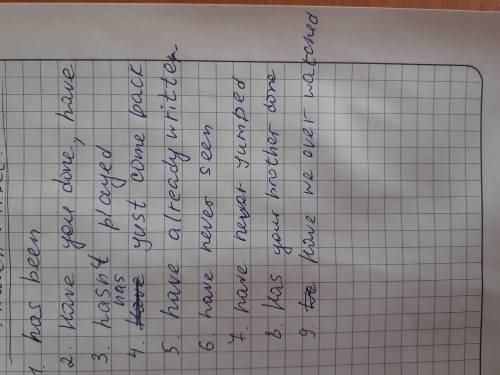 1. has been
2. Have you done, have
3. hasn't played
4. has just come back
5. have already written
6 have never seen
7. have never jumped
8. Has your brother done
9. Have we ever watched